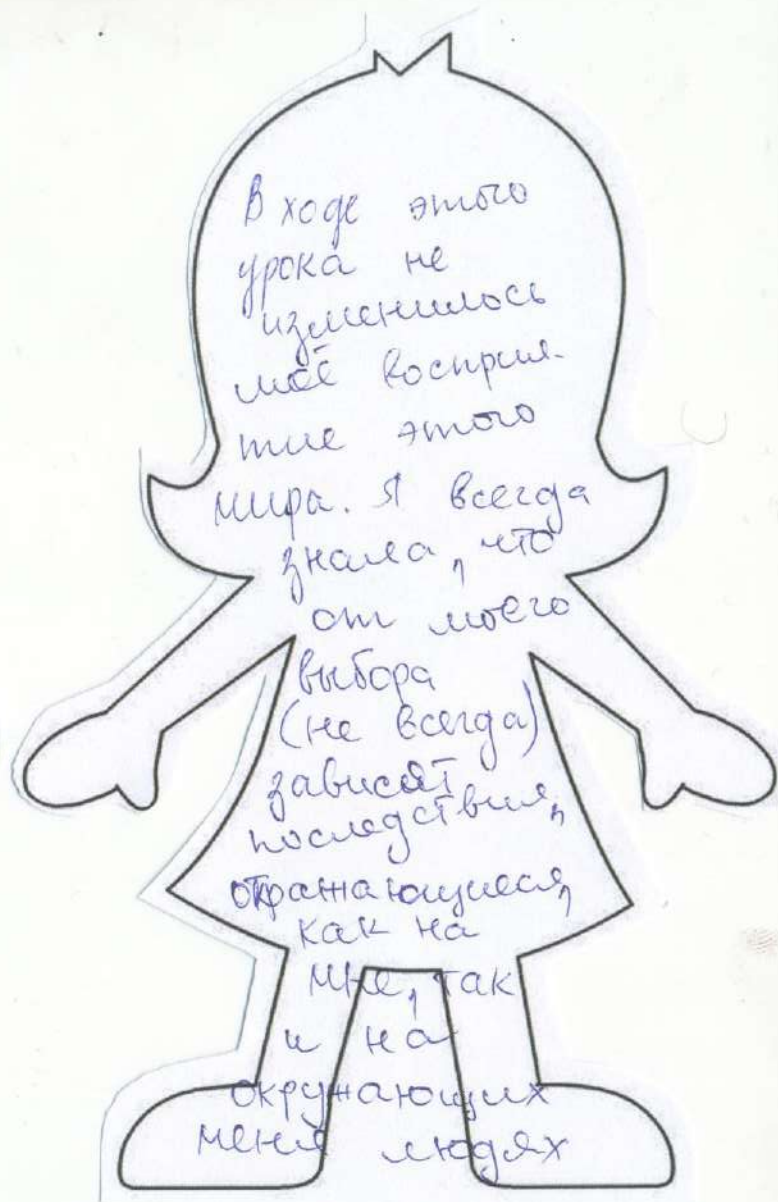 В ходе этого
урока не
изменилось
моё восприя-
тие этого
мира. Я всегда
знала, что
от моего
выбора
(не всегда)
зависят
последствия,
отражающиеся,
как на
мне, так
и на
окружающих
меня людях